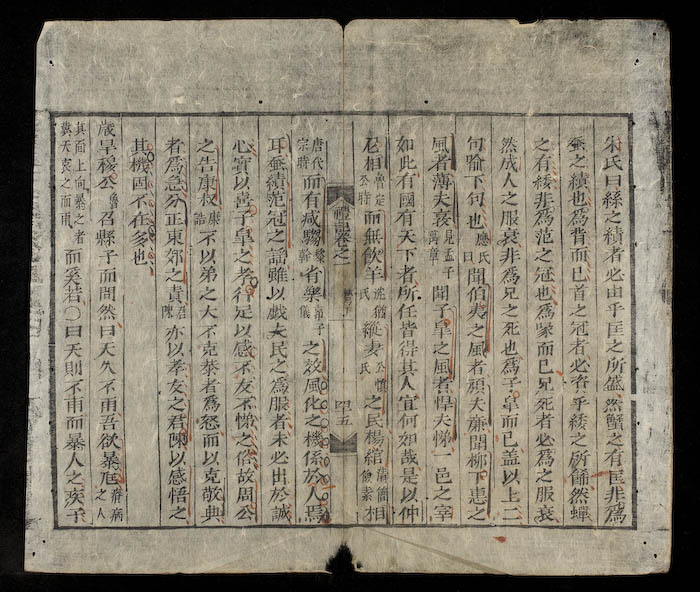 宋氏曰絲之績者必由乎匡之所盛然蟹之有匡非爲
蚕之績也爲背而已首之冠者必資乎緌之所餙然蟬
之有緌非爲范之冠也爲喙而已兄死者必爲之服衰
然成人之服衰非爲兄之死也爲子皐而已盖以上二
句喻下句也應氏曰聞伯夷之風者頑夫廉聞柳下惠之
風者薄夫衰見孟子萬章聞子皐之風者悍夫悌一邑之宰
如此有國有天下者所任皆得其人宜何如哉是以仲
尼相魯定公時而無飲羊沈猶氏縱妻公愼氏之民楊綰儉素相
禮記卷之一
四五
唐代宗時而有减騶黎幹省樂郭子儀之效風化之機係於人焉
耳蚕績范冠之謡雖以戲夫民之爲服者未必出於誠
心實以喜子皐之孝行足以感不友不悌之俗故周公
之告康叔康誥不以弟之大不克恭者爲怒而以克敬典
者爲急分正東郊之責君陳亦以孝友之君陳以感悟之
其機固不在多也
歲旱穆公魯召縣子而問然曰天久不雨吾欲暴尪瘠病之人
其面上向暴之者冀天哀之而雨而奚若○曰天則不雨而暴人之疾子